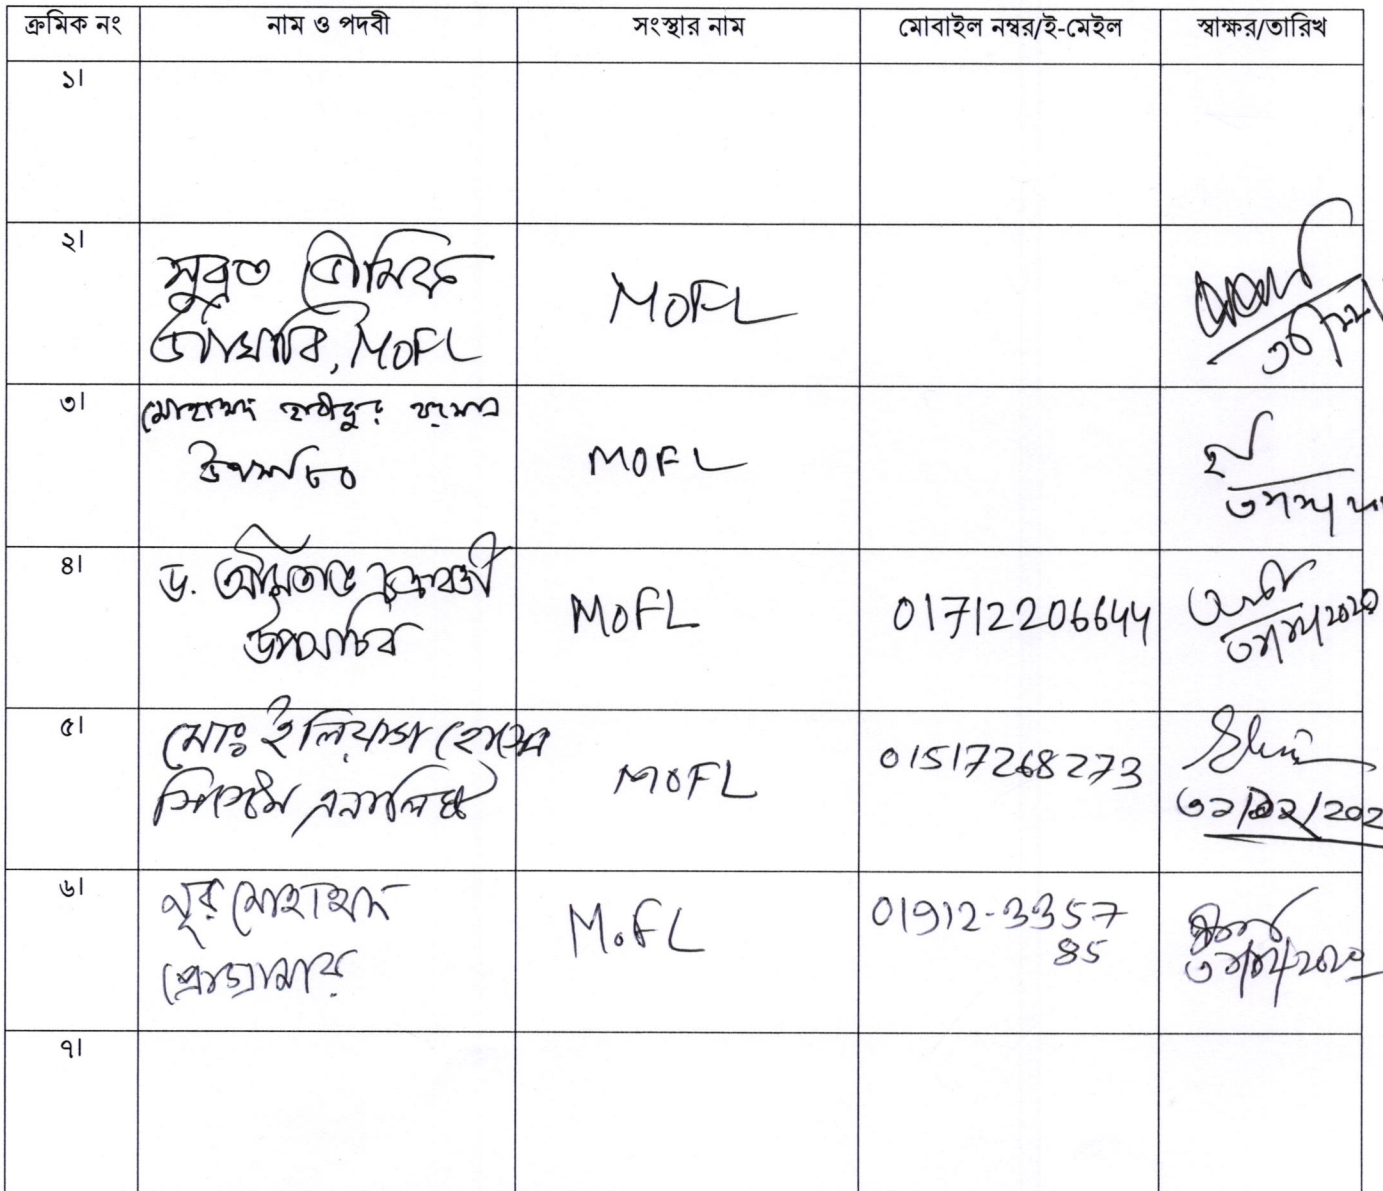 ক্রমিক নং নাম ও পদবী সংস্থার নাম মোবাইল নম্বর/ই-মেইল স্বাক্ষর/তারিখ
১।
২।
সুব্রত ভৌমিক
উপসচিব, MOFL
MOFL
৩।
মোহাম্মদ হাবীবুর রহমান
উপসচিব
MOFL
৪।
ড. অমিতাভ চক্রবর্ত্তী
উপসচিব
MOFL 01712206644
৫।
মোঃ ইলিয়াস হোসেন
সিস্টেম এনালিষ্ট
MOFL 01517268273
৬।
নূর মোহাম্মদ
প্রোগ্রামার
M.FL 01912-3357
85
৭।